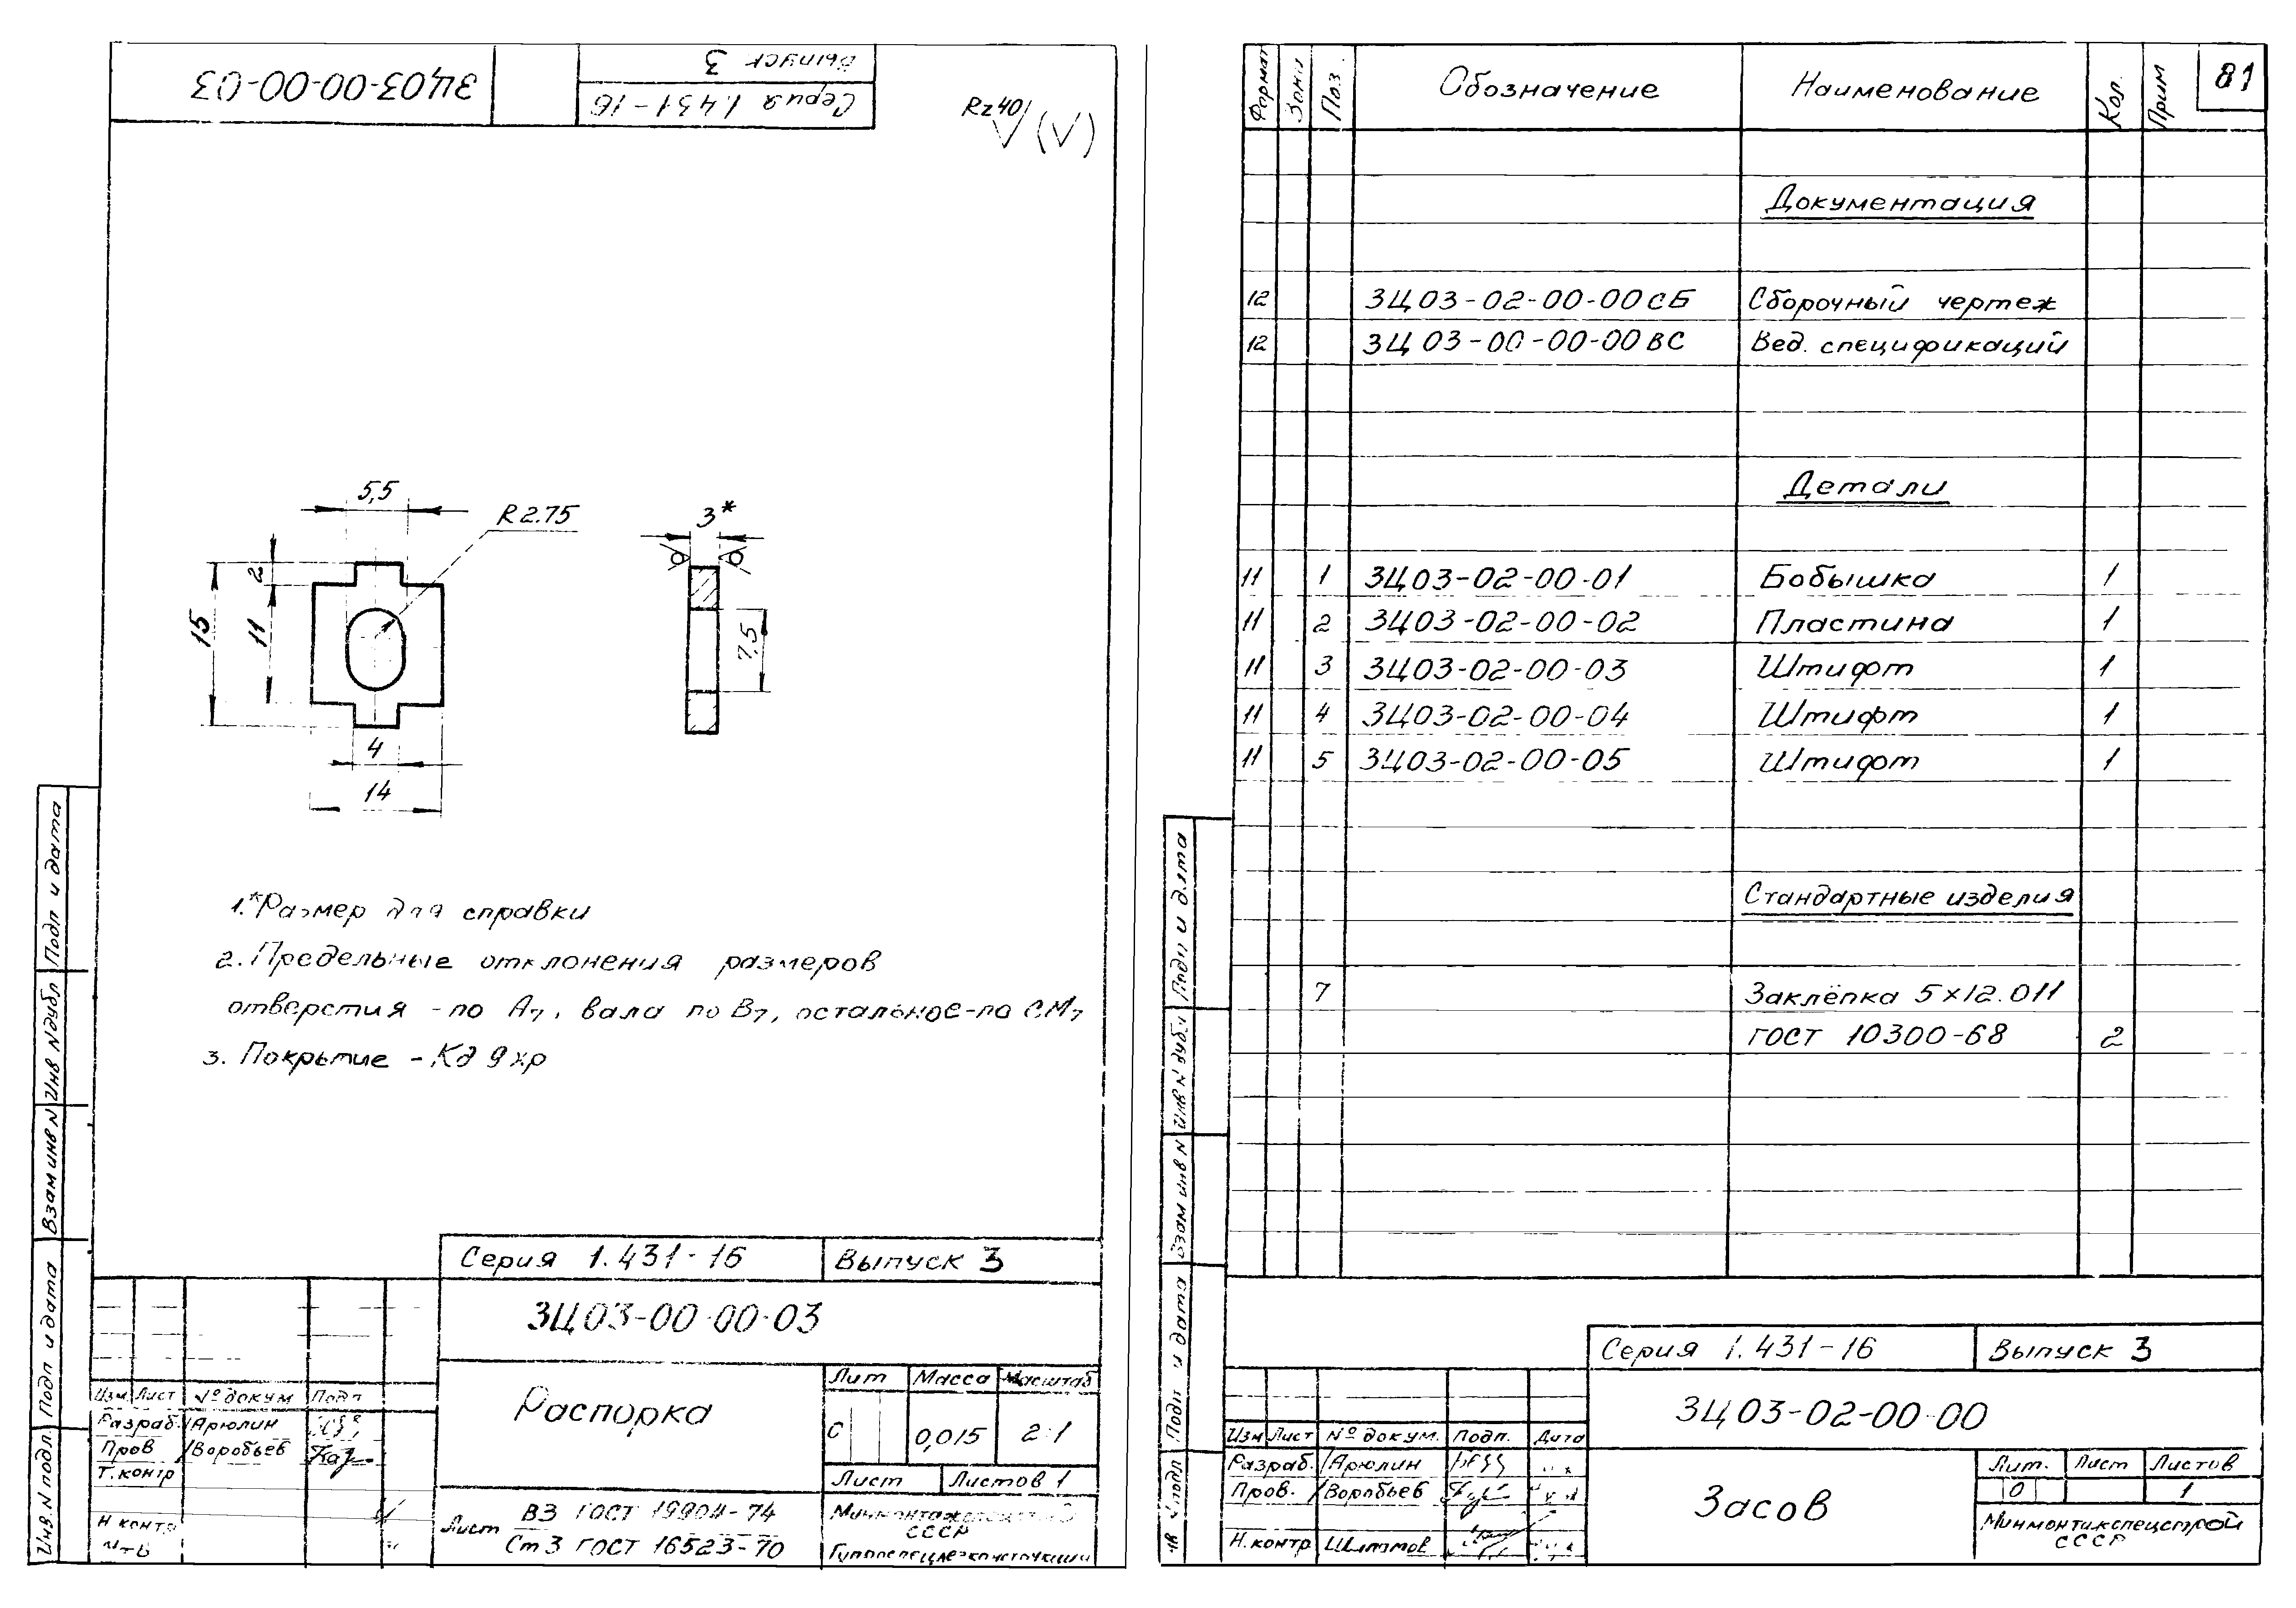 ЗЦ03-00-00-03
Выпуск 3
Серия 1.431-16
Rz40
5,5
R2.75
3*
2
15
11
7,5
4
14
1.*Размер для справки
2. Предельные отклонения размеров
отверстия - по А7, вала по В7, остальное-по СМ7
3. Покрытие - Кд 9 хр
Инв.N подл.
Подп и дата
Взам инв N
Инв Nдубл
Подп и дата
Серия 1.431-16
Выпуск 3
ЗЦ03-00-00-03
Изм Лист № докум Подп
Разраб. Арюлин
Пров Воробьев
Т.контр
Н контр
Утв
Распорка
Лит Масса Масштаб
С 0,015 2:1
Лист Листов 1
Лист В3 ГОСТ 19904-74
Ст 3 ГОСТ 16523-70
Минмонтажспецстрой
СССР
81
Формат Зона Поз. Обозначение Наименование Кол. Прим
Документация
12 ЗЦ03-02-00-00СБ Сборочный чертеж
12 ЗЦ03-00-00-00ВС Вед. спецификаций
Детали
11 1 ЗЦ03-02-00-01 Бобышка 1
11 2 ЗЦ03-02-00-02 Пластина 1
11 3 ЗЦ03-02-00-03 Штифт 1
11 4 ЗЦ03-02-00-04 Штифт 1
11 5 ЗЦ03-02-00-05 Штифт 1
Стандартные изделия
7 Заклёпка 5×12.011
ГОСТ 10300-68 2
подл
Подп и дата
Взам инв N
Инв N дубл
Подп и дата
Серия 1.431-16
Выпуск 3
ЗЦ03-02-00-00
Изм Лист № докум. Подп. Дата
Разраб. Арюлин
Пров. Воробьев
Н.контр
Засов
Лит. Лист Листов
О 1
Минмонтажспецстрой
СССР